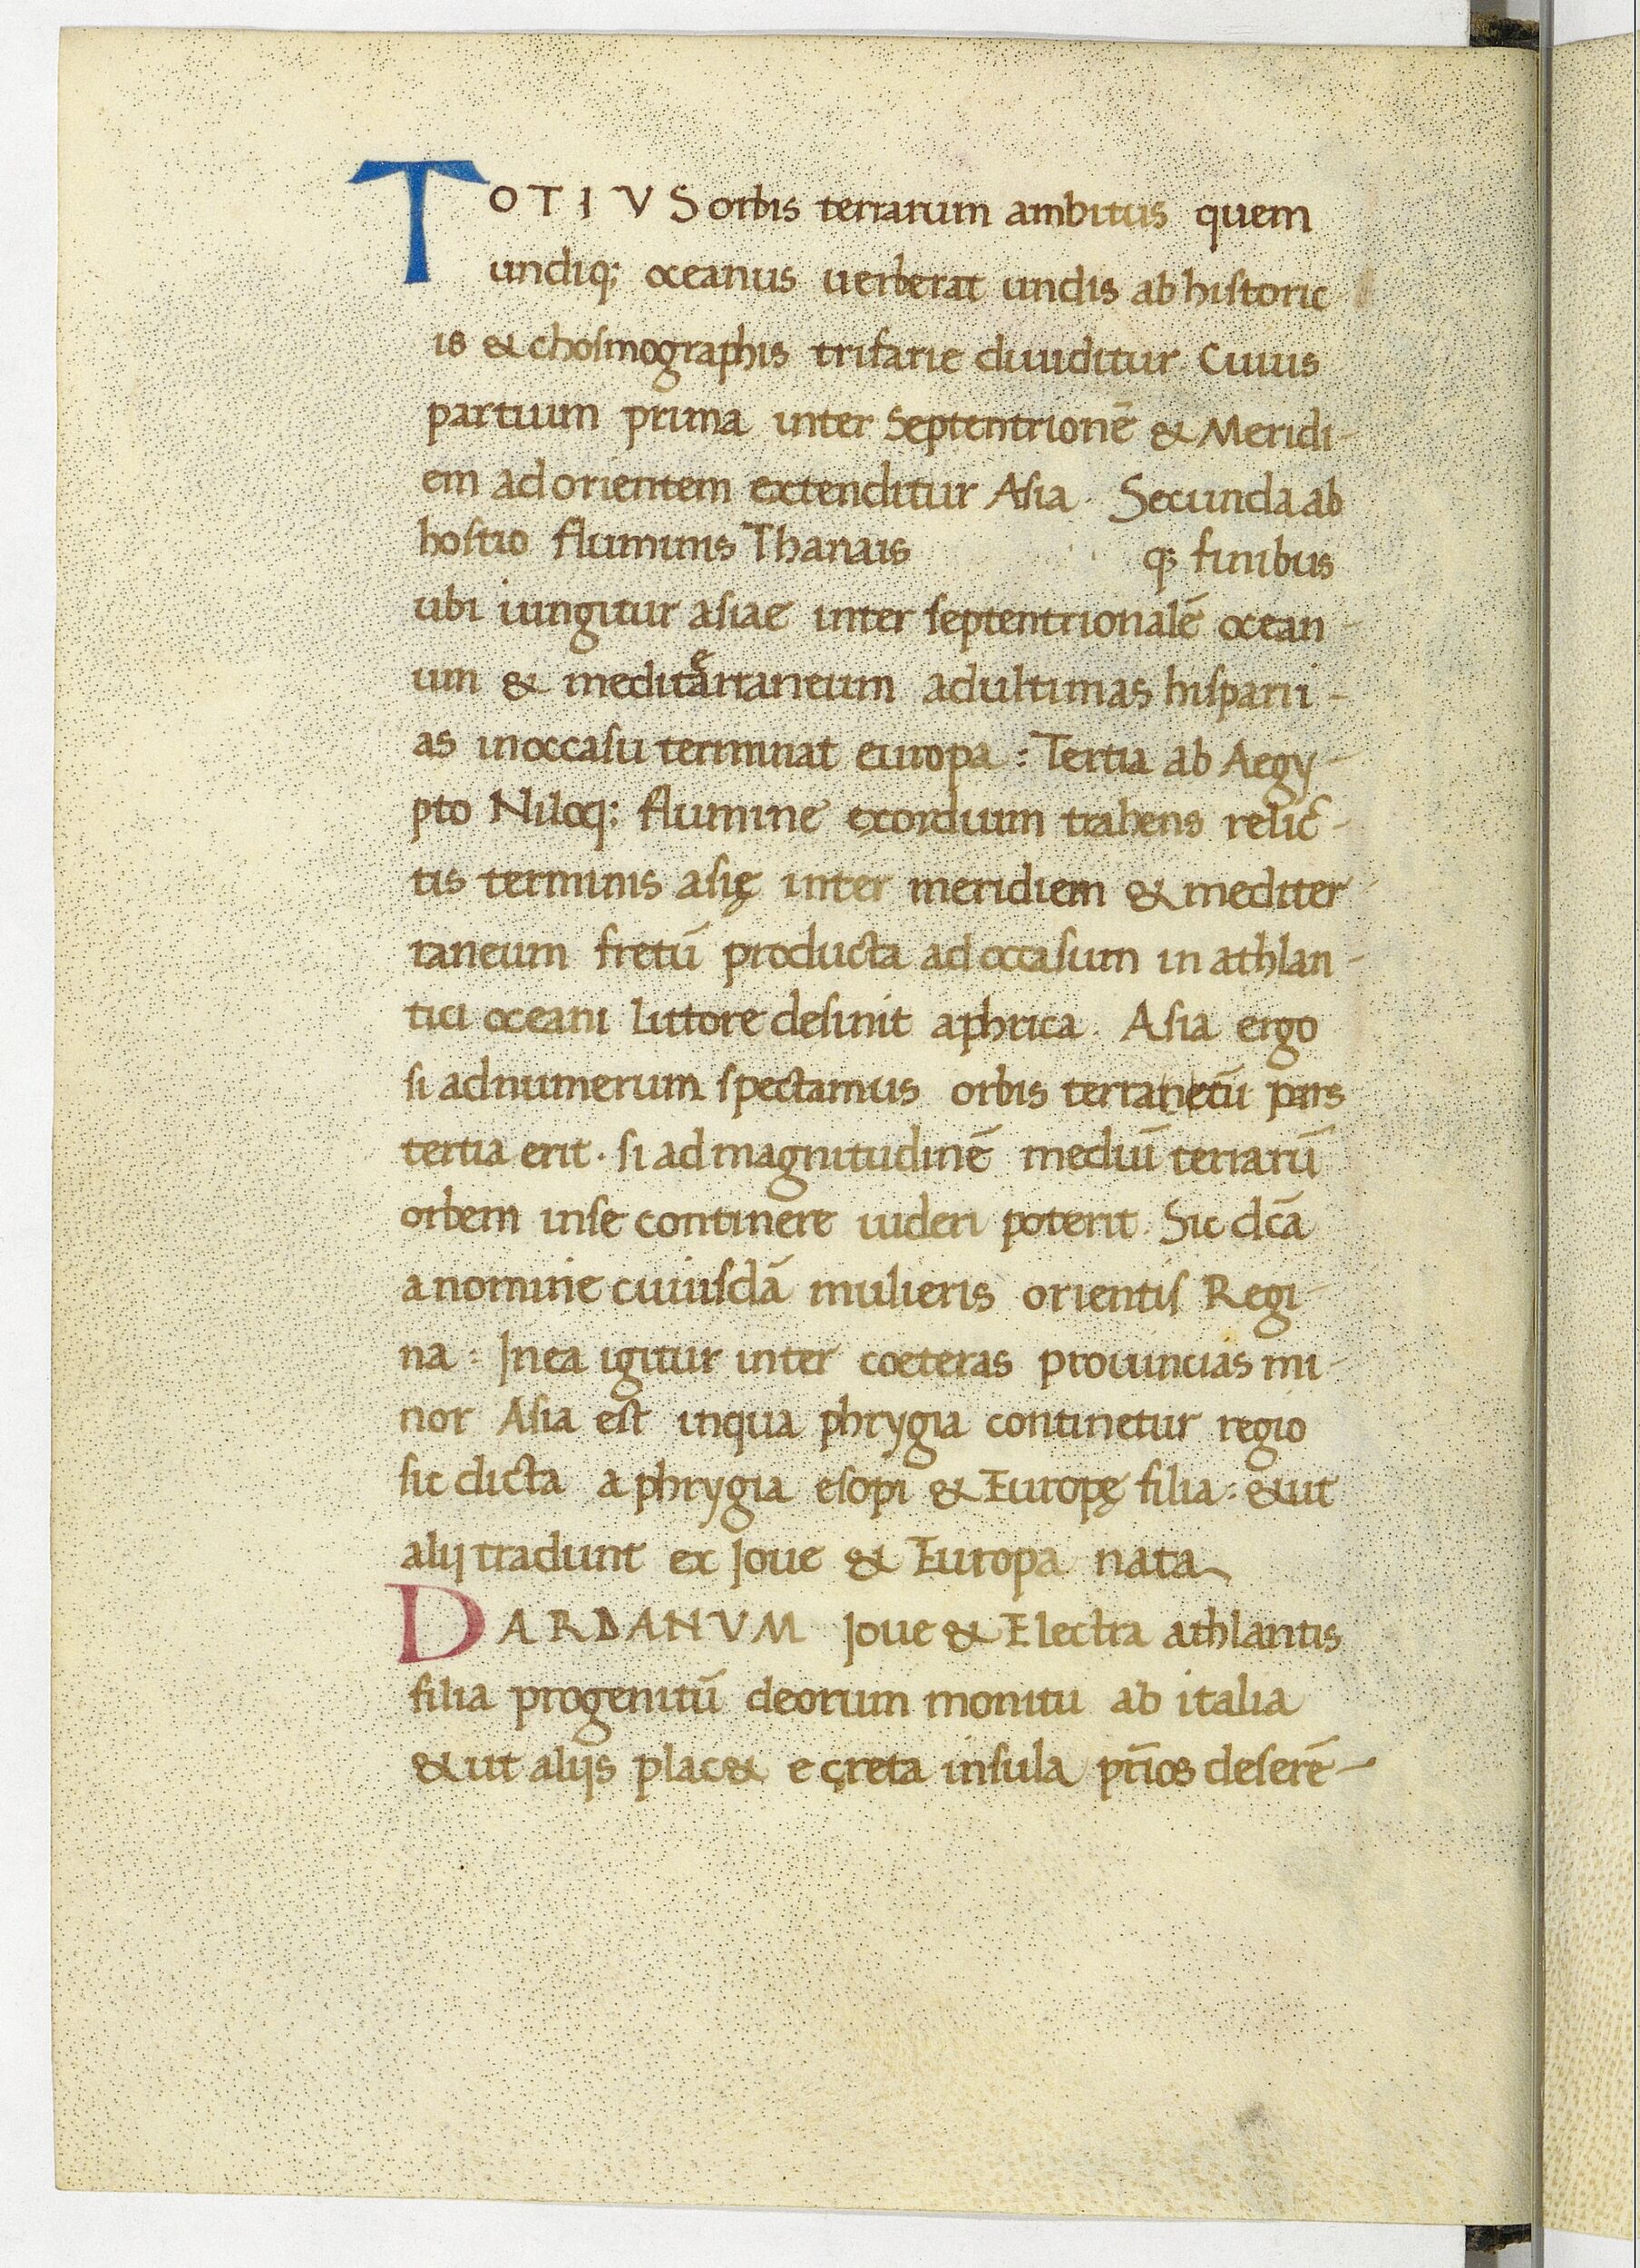 TOTIVS orbis terrarum ambitus quem
undiq; oceanus uerberat undis ab historic
is & chosmographis trifarie diuiditur Cuius
partium prima inter Septentrionē & Meridi-
em ad orientem extenditur Asia. Secunda ab
hostio fluminis Thanais q; finibus
ubi iungitur asiae inter septentrionalē ocean-
um & meditarraneum ad ultimas hispani-
as in occasu terminat europa: Tertia ab Aegy-
pto Niloq: flumine exordium trahens relic-
tis terminis asię inter meridiem & mediter-
raneum fretū producta ad occasum in athlan-
tici oceani Littore desinit aphrica. Asia ergo
si ad numerum spectamus orbis pars
tertia erit. si ad magnitudinē mediū terrarū
orbem in se continere uideri poterit. Sic dc̄a
a nomine cuiusdā mulieris orientis Regi-
na: In ea igitur inter coeteras prouincias mi-
nor Asia est in qua phrygia continetur regio
sic dicta a phrygia esopi & Europę filia: & ut
alij tradunt ex Ioue & Europa nata
DARDANVM Ioue & Electra athlantis
filia progenitū deorum monitu ab italia
& ut alijs plac& e creta insula pr̄ios deserē-